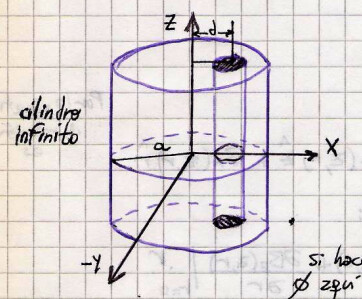 Z
d
cilindro
infinito
a
X
-Y
si hac
φ zqui